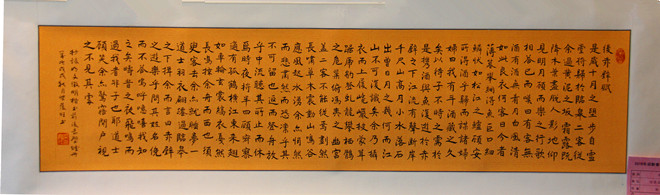 後赤壁賦
是歲十月之望步自雪
堂將歸於臨皋二客從
余過黃泥之坂霜露既
降木葉盡脫人影在地仰
見明月顧而樂之行歌
相答已而歎曰有客無
酒有酒無肴月白風清
如此良夜何客曰今者
薄暮舉網得魚巨口細
鱗狀似松江之鱸顧安
所得酒乎歸而謀諸婦
婦曰我有斗酒藏之久
矣以待子不時之需於
是攜酒與魚復遊於赤
壁之下江流有聲斷岸
千尺山高月小水落石
出曾日月之幾何而江
山不可復識矣余乃攝
衣而上履巉巖披蒙茸
踞虎豹登虬龍攀棲鶻
之危巢俯馮夷之幽宮
蓋二客不能從焉劃然
長嘯草木震動山鳴谷
應風起水涌余亦悄然
而悲肅然而恐凜乎其
不可留也反而登舟放
乎中流聽其所止而休
焉時夜將半四顧寂寥
適有孤鶴橫江東來翅
如車輪玄裳縞衣戛然
長鳴掠余舟而西也須
臾客去余亦就睡夢一
道士羽衣蹁躚過臨皋
之下揖余而言曰赤壁
之遊樂乎問其姓名俛
而不答嗚呼噫嘻我知
之矣疇昔之夜飛鳴而
過我者非子也耶道士
顧笑余亦驚寤開戶視
之不見其處